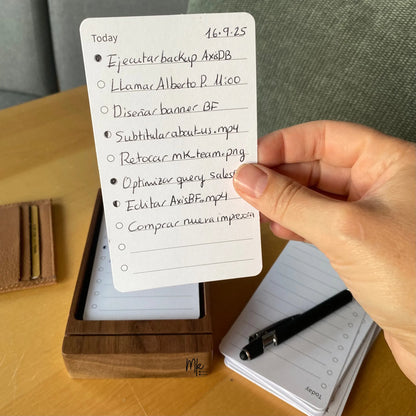 Today 16.9.25
Ejecutar backup AxisDB
Llamar Alberto P. 11:00
Diseñar banner BF
Subtitular aboutus.mp4
Retocar mk_team.png
Optimizar query sales
Editar AxisBF.mp4
Comprar nueva impresora
Today